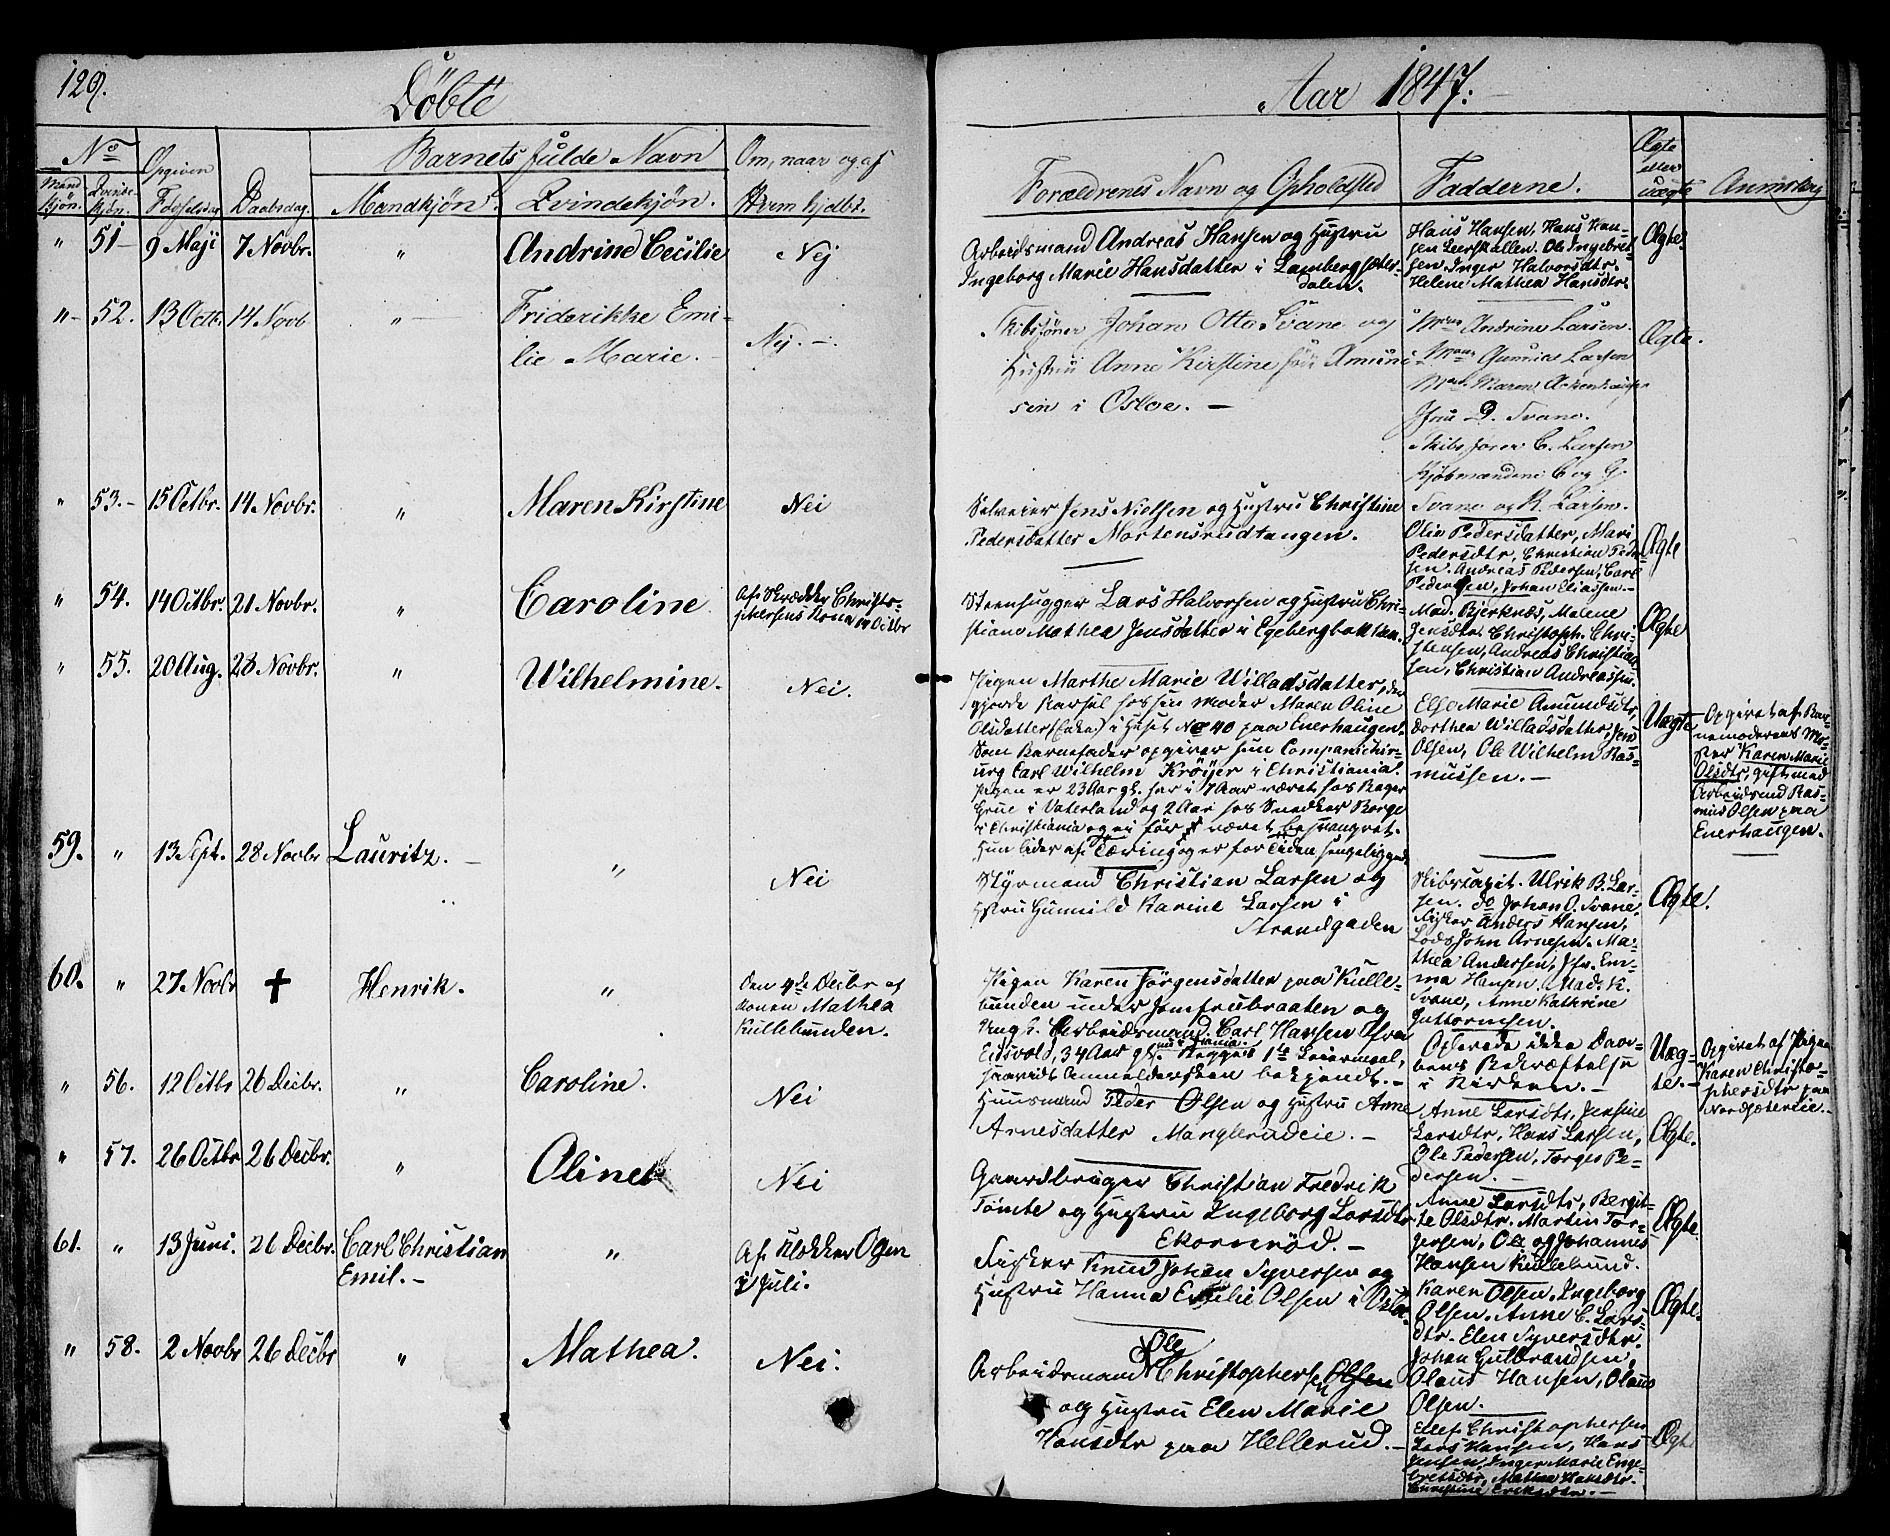 129.
Döbte
Aar 1847:
No
Mandkjøn. Qvindekjøn.
Opgiven Fødselsdag
Daabsdag.
Barnets fulde Navn
Mandkjøn. Qvindekjøn.
Om, naar og af
Hvem hjdbt.
Forældrenes Navn og Opholdsted
Fadderne.
Ægte
eller
uægte
Anmærkg
" 51 9 Maji 7 Novbr. " Andrine Cecilie Nej
Arbeidsmand Andreas Hansen og Hustru
Ingeborg Marie Hansdatter i Lambergsæter-
dalen.
Hans Hansen, Hans Han-
sen Leerskallen. Ole Ingebret-
sen. Inger Halvorsdtr.
Helene Mathea Hansdtr.
Ægte.
" 52. 13 Octb. 14 Novb " Friderikke Emi-
lie Marie. Nej.
Skibsfører Johan Otto Svane og
Hustru Anne Kirstine född Amund-
sen i Osloe.
Andrine Larsen.
Larsen
Maren
Jfru D. Svane.
Skibsfører C. Larsen
Kjøbmændene C og G.
Svane og R. Larsen.
Ægte.
" 53. 15 Octbr. 14 Novbr. " Maren Kirstine Nei
Selveier Jens Nielsen og Hustru Christine
Pedersdatter Mortensrudtangen.
Olia Pedersdatter, Mari
Pedersdtr, Christian Peder-
sen. Andreas Pedersen, Carl
Pedersen, Johan Eliassen.
Ægte
" 54. 14 Octbr. 21 Novbr. " Caroline
Af Skrædder Christo-
phersens Kona 14 Octbr
Steenhugger Lars Halvorsen og Hustru Chri-
stiane Mathea Jensdatter i Egebergbakken.
Mad. Bjerknæs, Malene
Jensdtr. Christoph. Chri-
stensen, Andreas Christian-
sen, Christian Andreassen.
Ægte
" 55. 20 Aug. 28 Novbr. " Wilhelmine. Nei.
Pigen Marthe Marie Willadsdatter, der
gjorde Barsel hos sin Moder Maren Oline
Olsdatter (Enke) i Huset No 40 paa Enerhaugen.
Som Barnefader opgiver hun Compagnichir-
urg Carl Wilhelm Kröyer i Christiania.
Pigen er 23 Aar gl. har i 7 Aar været hos Bager
Grue i Vaterland og 2 Aar hos Snedker Borge
i Christiania og ei før været besvangret.
Hun lider af Tæring og er for Tiden sengeliggende.
Else Marie Amundsdtr,
Dorthea Willadsdatter, Jens
Olsen, Ole Wilhelm Ras-
mussen.
Uægte
Opgivet af Bar-
nemoderens Mo-
ster Karen Marie
Olsdtr, gift med
Arbeidsmd Ras-
mus Olsen paa
Enerhaugen.
59. " 13 Sept. 28 Novbr Lauritz. " Nei
Styrmand Christian Larsen og
Hstru Gunnild Karine Larsen i
Strandgaden
Skibscapit. Ulrik B. Lar-
sen. do Johan O. Svane.
Fisker Anders Hansen,
Lods John Arnesen. Ma-
thea Andersen, Jfr. Em-
ma Hansen, Mad. K.
Svane, Anne Kathrine
Guttormsen.
Ægte!
60. " 27 Novbr ✝ Henrik. "
Den 4de Decbr af
Konen Mathea
Kullebunden.
Pigen Karen Jörgensdatter paa Kulle-
bunden under Jomfrubraaten og
Ungk. Arbeidsmand Carl Hansen Ofra
Eidsvold, 34 Aar gl. Begges 1ste Leiermaal,
saavidt Anmeldersken bekjendt.
Oplevede ikke Daa-
bens Bekræftelse
i Kirken.
Uæg-
te.
Opgivet af Pigen
Karen Christo-
phersdtr paa
Nordsæterie.
" 56. 12 Octbr 26 Decbr. " Caroline. Nei
Huusmand Peder Olsen og Hustru Anne
Arnesdatter Manglerudeie.
Anne Larsdtr, Jensine
Larsdtr, Hans Larsen,
Ole Pedersen, Torges Pe-
dersen.
Ægte.
" 57. 26 Octbr 26 Decbr. " Oline Nei
Gaardbruger Christian Fredrik
Tömte og Hustru Ingeborg Larsdtr
Ekornrød.
Anne Larsdtr, Bergit-
te Olsdtr. Martin Tor-
gersen, Ole og Johannes
Hansen Kullebund.
Ægte.
61. " 13 Juni. 26 Decbr. Carl Christian
Emil. "
Af Klokker Olsen
i Juli.
Fisker Knud Johan Syversen og
Hustru Hanna Emilie Olsen i Oslo.
Karen Olsen, Ingeborg
Olsen. Anne C. Lars-
dtr. Elen Syversdtr.
Johan Gulbrandsen,
Olaus Hansen, Olaus
Olsen.
Ægte.
" 58. 2 Novbr 26 Decbr " Mathea. Nei.
Ole
Arbeidsmand Christophersen Olsen
og Hustru Elen Marie
Hansdtr paa Hellerud.
Ellef Christophersen
Lars Hansen, Hans
Jensen, Inger Marie Enge-
bretsdtr, Mathea Hansdtr.
Christine Eriksdtr.
Ægt